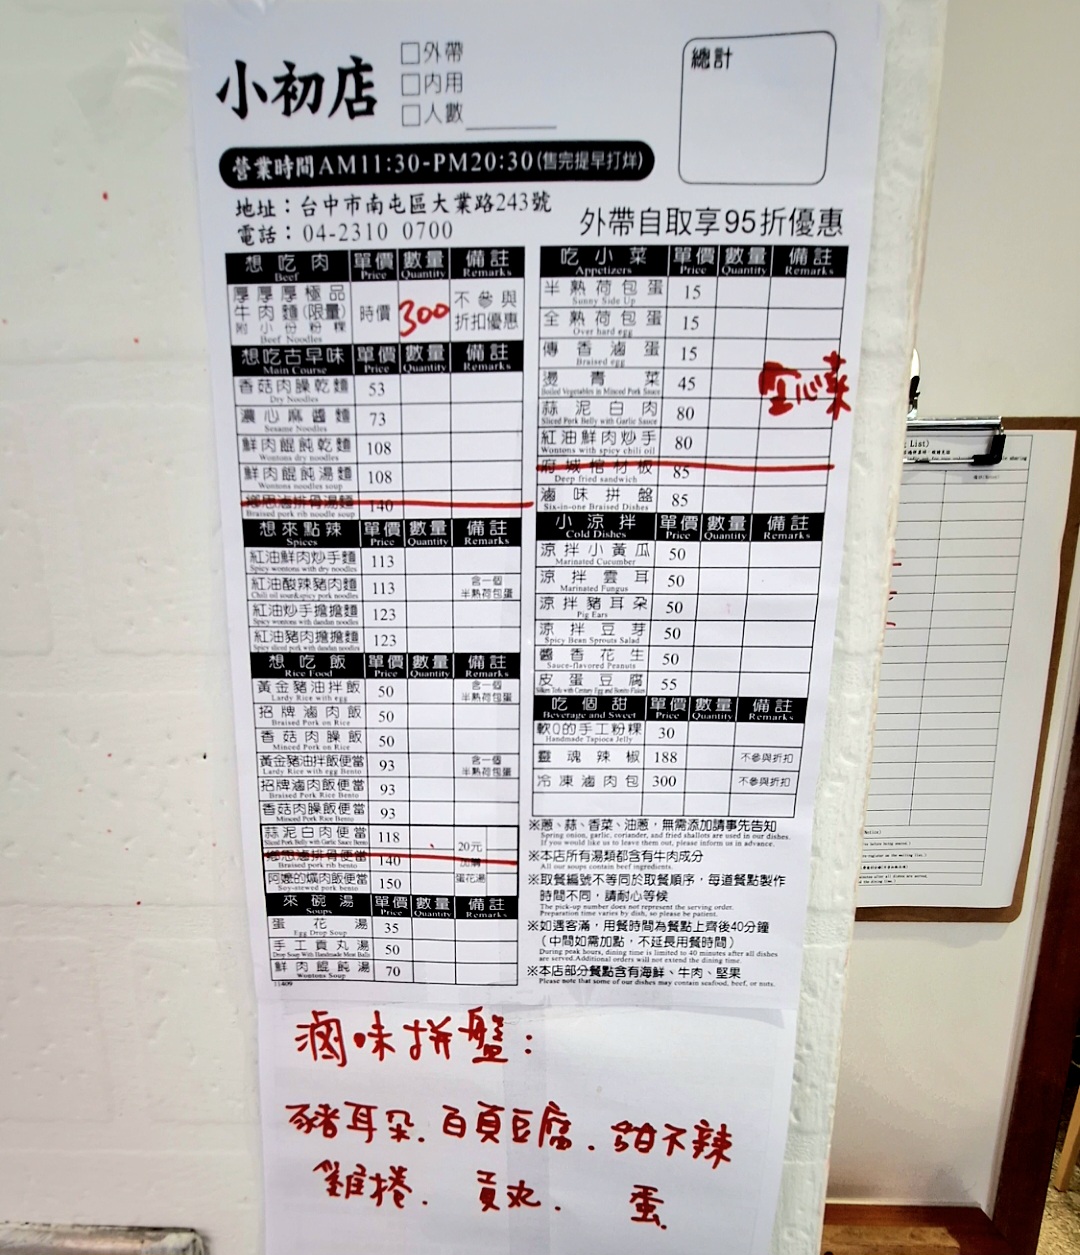 小初店
□外帶
□內用
□人數
總計
營業時間AM11:30-PM20:30(售完提早打烊)
地址：台中市南屯區大業路243號
電話：04-2310 0700
外帶自取享95折優惠
想吃肉 單價 數量 備註
Beef Price Quantity Remarks
厚厚厚極品 牛肉麵(限量) 附小份粉粿 時價 300 不參與折扣優惠
Beef Noodles
想吃古早味 單價 數量 備註
Main Course Price Quantity Remarks
香菇肉臊乾麵 53
Dry Noodles
濃心麻醬麵 73
Sesame Noodles
鮮肉餛飩乾麵 108
Wontons dry noodles
鮮肉餛飩湯麵 108
Wontons noodles soup
鄉思滷排骨湯麵 140
Braised pork rib noodle soup
想來點辣 單價 數量 備註
Spices Price Quantity Remarks
紅油鮮肉炒手麵 113
Spicy wontons with dry noodles
紅油酸辣豬肉麵 113 含一個半熟荷包蛋
Chili oil sour&spicy pork noodles
紅油炒手擔擔麵 123
Spicy wontons with dandan noodles
紅油豬肉擔擔麵 123
Spicy sliced pork with dandan noodles
想吃飯 單價 數量 備註
Rice Food Price Quantity Remarks
黃金豬油拌飯 50 含一個半熟荷包蛋
Lardy Rice with egg
招牌滷肉飯 50
Braised Pork on Rice
香菇肉臊飯 50
Minced Pork on Rice
黃金豬油拌飯便當 93 含一個半熟荷包蛋
Lardy Rice with egg Bento
招牌滷肉飯便當 93
Braised Pork Rice Bento
香菇肉臊飯便當 93
Minced Pork Rice Bento
蒜泥白肉便當 118 20元
Sliced Pork Belly with Garlic Sauce Bento
鄉思滷排骨便當 140 加購
Braised pork rib bento
阿嬤的爌肉飯便當 150 蛋花湯
Soy-stewed pork bento
來碗湯 單價 數量 備註
Soups Price Quantity Remarks
蛋花湯 35
Egg Drop Soup
手工貢丸湯 50
Drop Soup With Handmade Meat Balls
鮮肉餛飩湯 70
Wontons Soup
11409
吃小菜 單價 數量 備註
Appetizers Price Quantity Remarks
半熟荷包蛋 15
Sunny Side Up
全熟荷包蛋 15
Over hard egg
傳香滷蛋 15
Braised egg
燙青菜 45 空心菜
Boiled Vegetables in Minced Pork Sauce
蒜泥白肉 80
Sliced Pork Belly with Garlic Sauce
紅油鮮肉炒手 80
Wontons with spicy chili oil
府城棺材板 85
Deep fried sandwich
滷味拼盤 85
Six-in-one Braised Dishes
小涼拌 單價 數量 備註
Cold Dishes Price Quantity Remarks
涼拌小黃瓜 50
Marinated Cucumber
涼拌雲耳 50
Marinated Fungus
涼拌豬耳朵 50
Pig Ears
涼拌豆芽 50
Spicy Bean Sprouts Salad
醬香花生 50
Sauce-flavored Peanuts
皮蛋豆腐 55
Silken Tofu with Century Egg and Bonito Flakes
吃個甜 單價 數量 備註
Beverage and Sweet Price Quantity Remarks
軟Q的手工粉粿 30
Handmade Tapioca Jelly
靈魂辣椒 188 不參與折扣
冷凍滷肉包 300 不參與折扣
※蔥、蒜、香菜、油蔥，無需添加請事先告知
Spring onion, garlic, coriander, and fried shallots are used in our dishes.
If you would like to leave them out, please inform us in advance.
※本店所有湯類都含有牛肉成分
All our soups contain beef ingredients.
※取餐編號不等同於取餐順序，每道餐點製作
時間不同，請耐心等候
The pick-up number does not represent the serving order.
Preparation time varies by dish, so please be patient.
※如遇客滿，用餐時間為餐點上齊後40分鐘
（中間如需加點，不延長用餐時間）
During peak hours, dining time is limited to 40 minutes after all dishes
are served. Additional orders will not extend the dining time.
※本店部分餐點含有海鮮、牛肉、堅果
Please note that some of our dishes may contain seafood, beef, or nuts.
滷味拼盤：
豬耳朵．百頁豆腐．甜不辣
雞捲．貢丸．蛋
List)